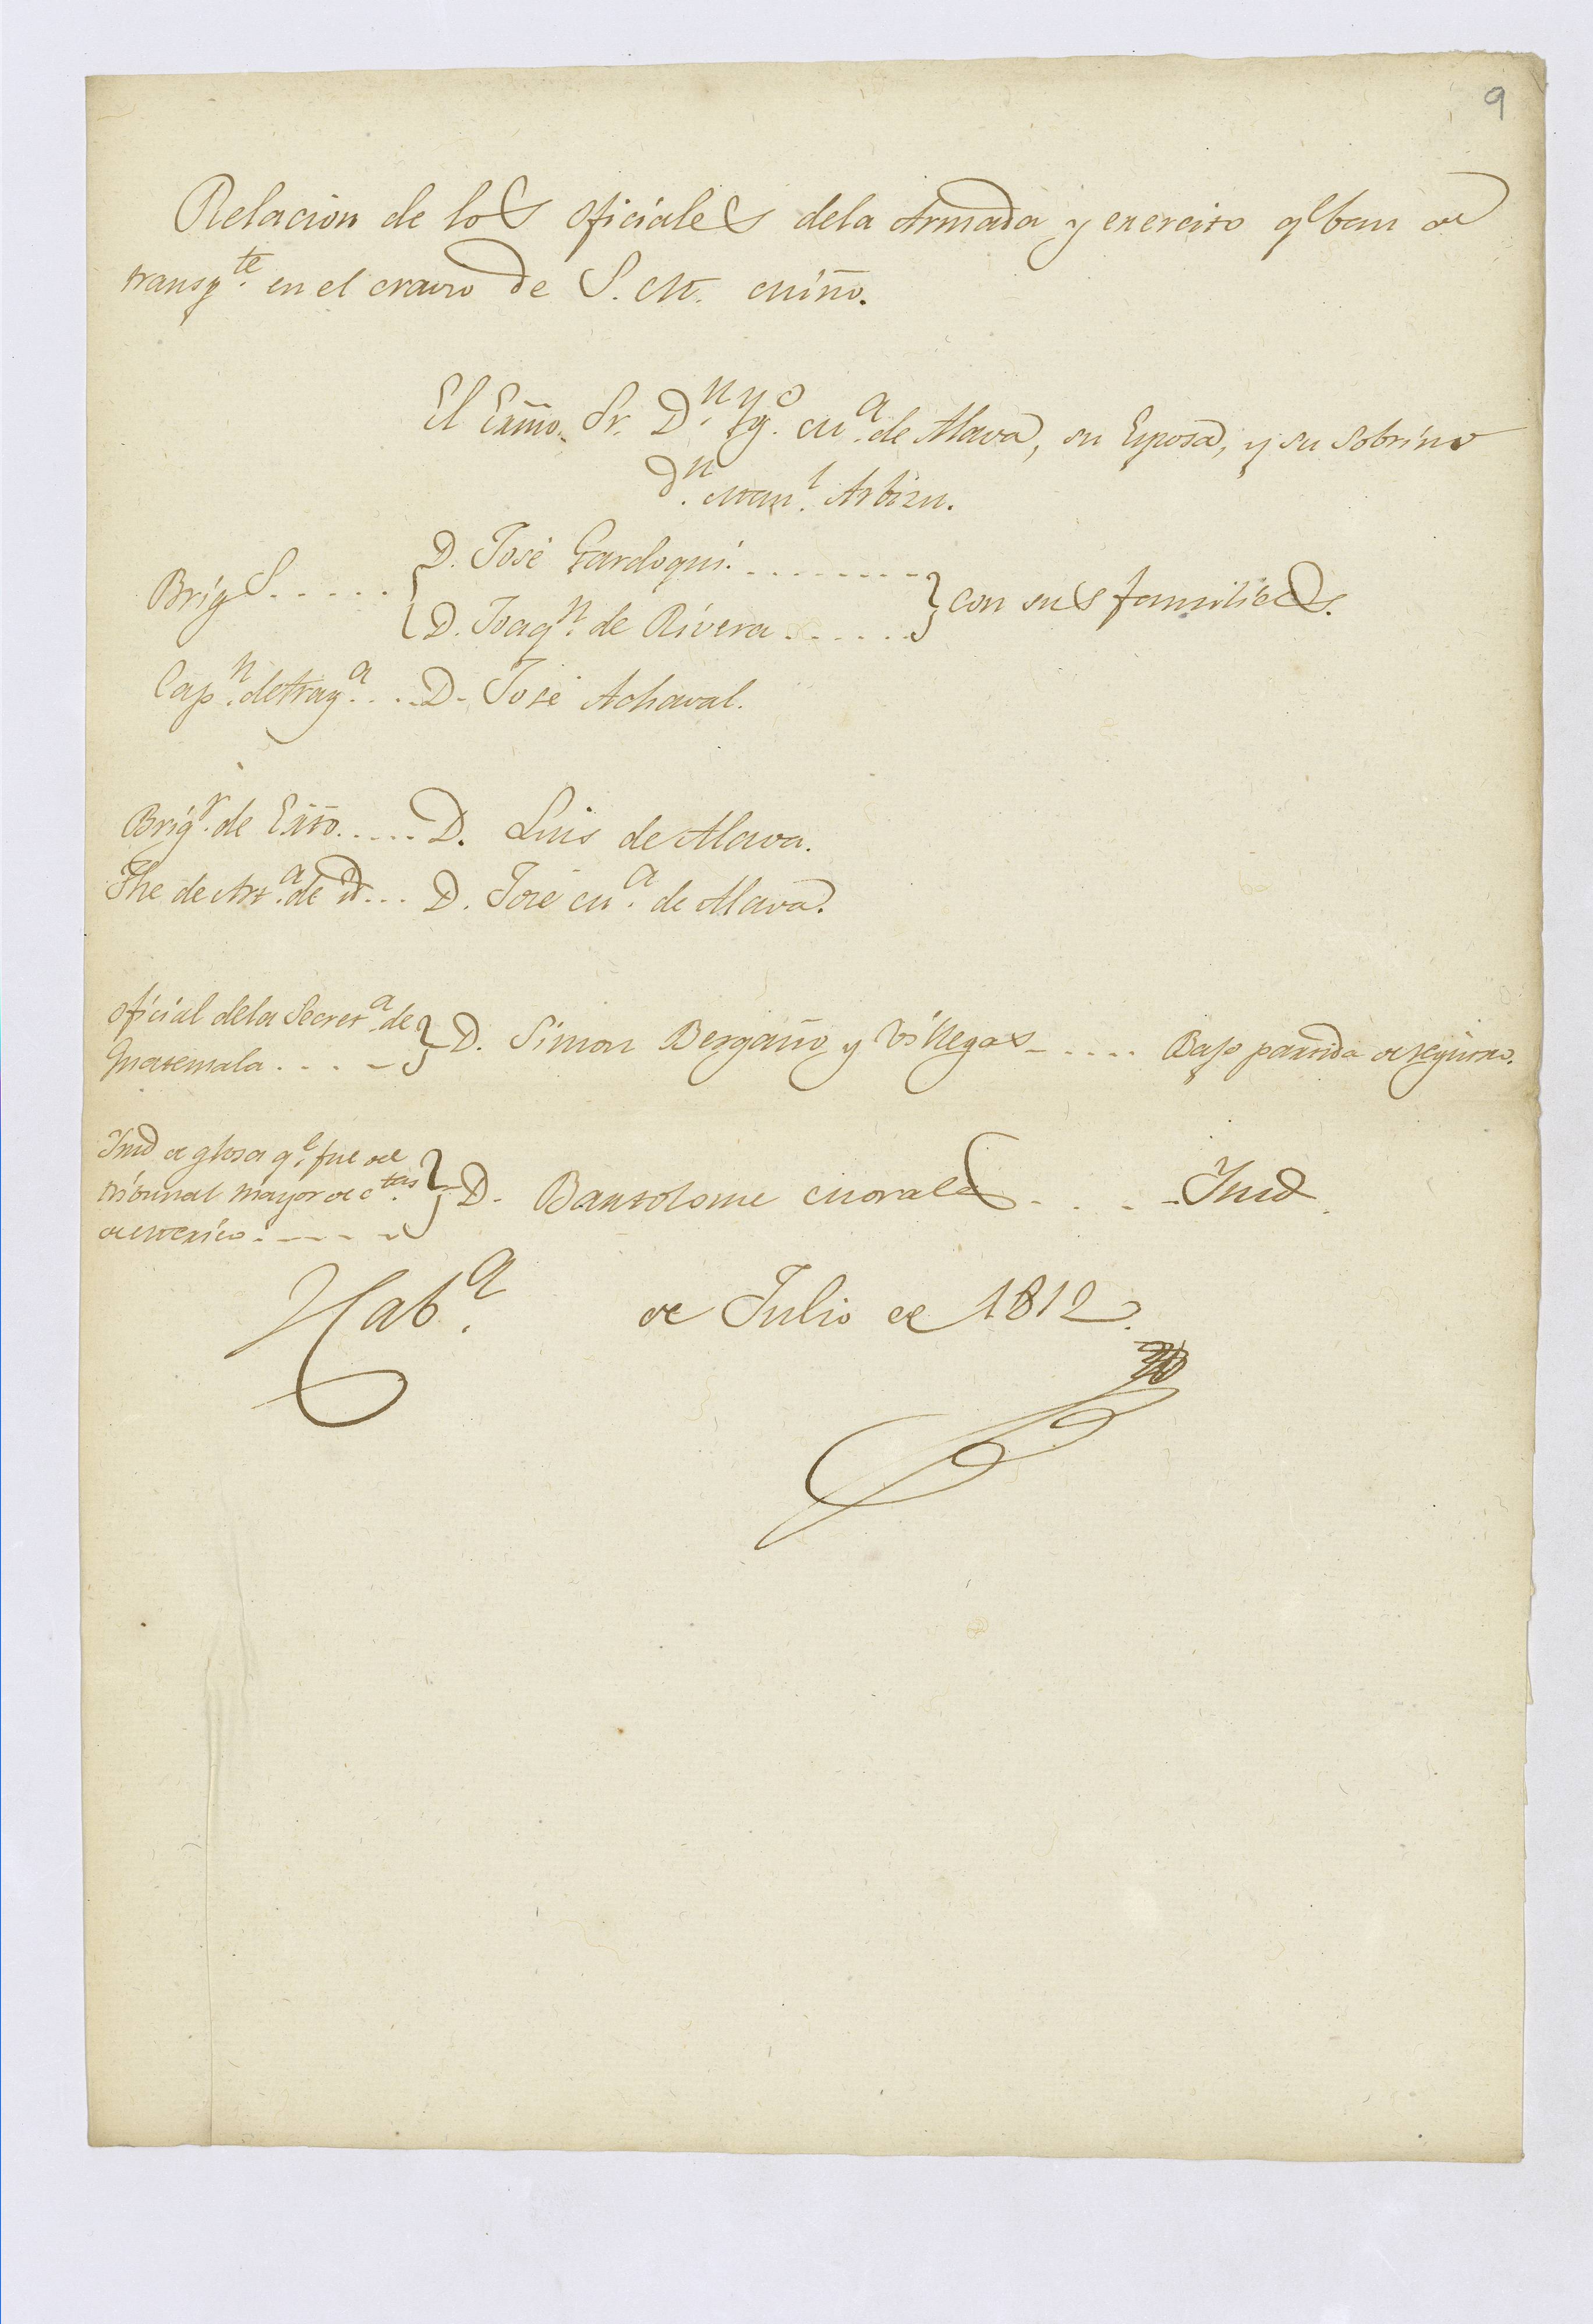 9
Relacion de los oficiales dela Armada y exercito qe ban de
transpte. en el navio de S. M. Miño.
El Exmo. Sr. Dn. Ygo. Ma. de Alava, su Esposa, y su sobrino
Dn. Manl. Arbizu.
Brigs..... { D. José Gardoqui. ......... } con sus familias.
D. Joaqn. de Rivera.......
Capn. de fraga. ... D. José Achaval.
Brigr. de Exto..... D. Luis de Alava.
The de Arta. de Yd... D. José Ma. de Alava.
oficial dela Secreta. de } D. Simon Bergaño y Villegas ..... Bajo partida de registro.
Guatemala. . . . -
Ynd de glosa qe. fue del } D. Bartolome Morales . . . - Ynd.
tribunal mayor de ctas.
de Mexico. - - - -
Haba. de Julio de 1812.